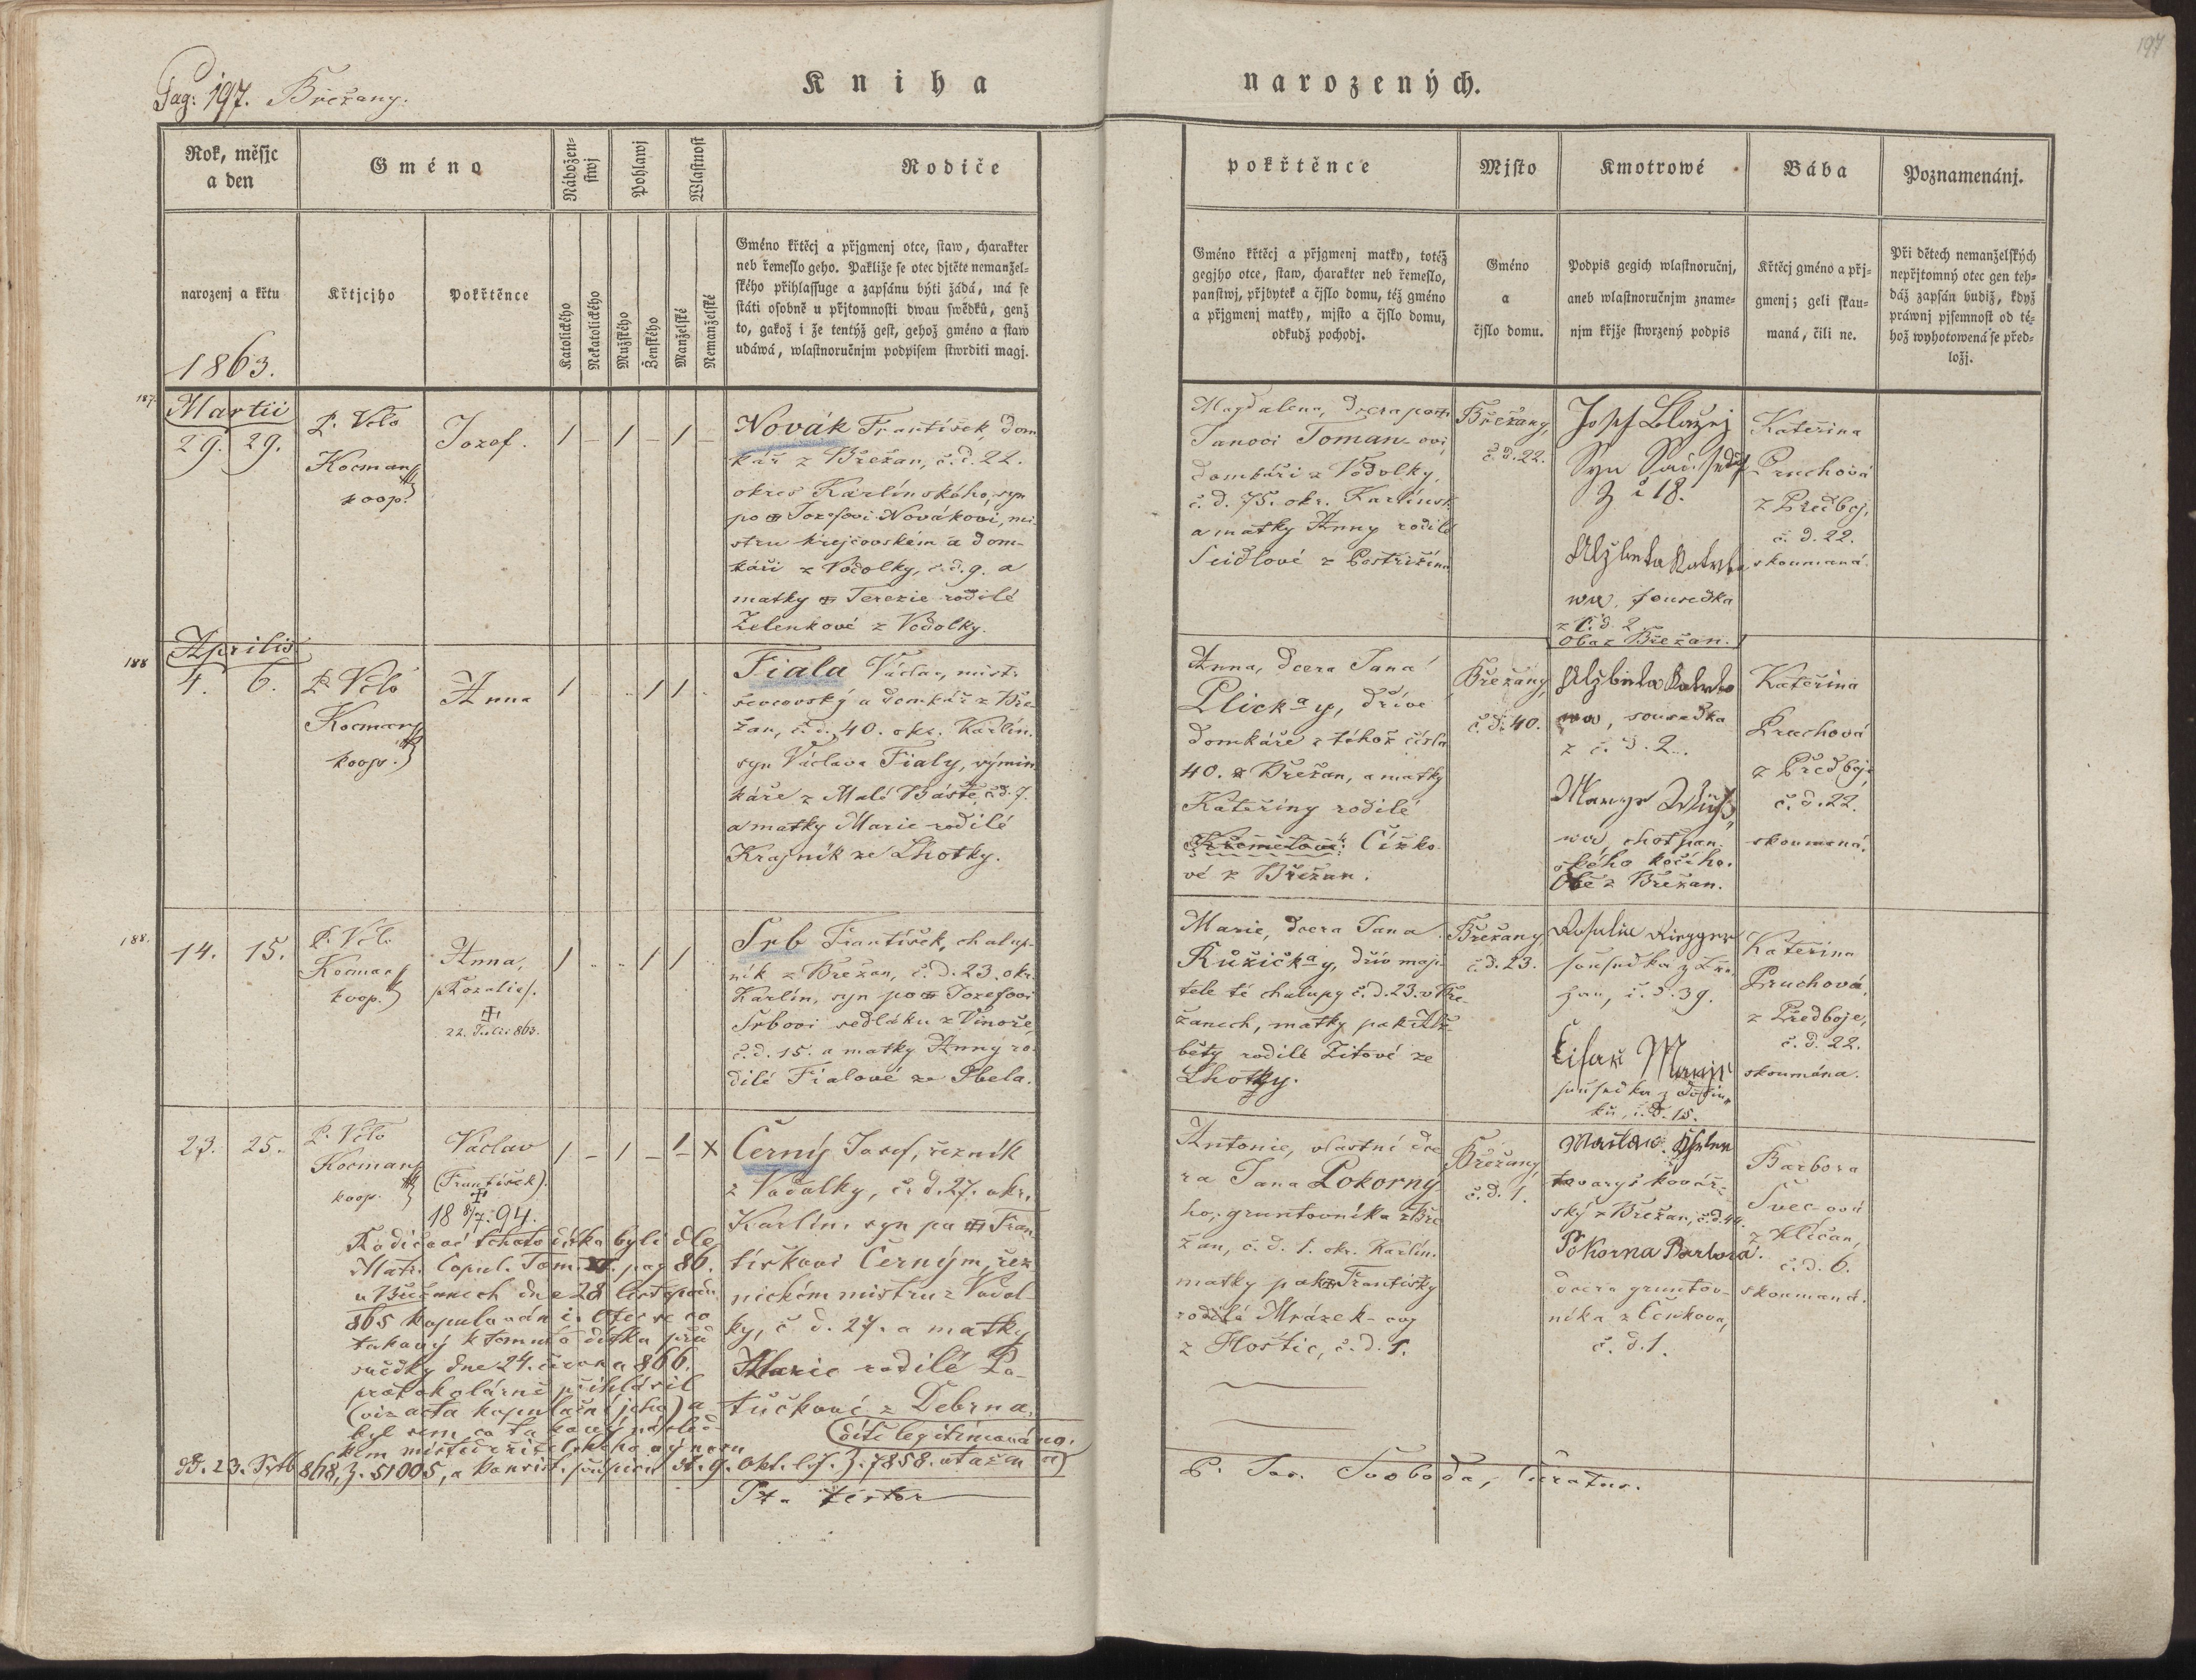 Pag: 197. Břežany.
Kniha narozených.
197
Rok, měsjc
a den
Gméno
Nábožen-
stwj
Pohlawj
Wlastnost
Rodiče
pokřtěnce
Mjsto
Kmotrowé
Bába
Poznamenánj.
narozenj a křtu
1863.
Křtjcjho
Pokřtěnce
Katolického
Nekatolického
Mužského
Ženského
Manželské
Nemanželské
Gméno křtěcj a přjgmenj otce, staw, charakter
neb řemeslo geho. Pakliže se otec djtěte nemanžel-
ského přihlassuge a zapsánu býti žádá, má se
státi osobně u přjtomnosti dwau swědků, genž
to, gakož i že tentýž gest, gehož gméno a staw
udáwá, wlastnoručnjm podpisem stwrditi magj.
Gméno křtěcj a přjgmenj matky, totéž
gegjho otce, staw, charakter neb řemeslo,
panstwj, přjbytek a čjslo domu, též gméno
a přjgmenj matky, mjsto a čjslo domu,
odkudž pochodj.
Gméno
a
čjslo domu.
Podpis gegich wlastnoručnj,
aneb wlastnoručnjm zname-
njm křjže stwrzený podpis
Křtěcj gméno a přj-
gmenj; geli skau-
maná, čili ne.
Při dětech nemanželských
nepřjtomný otec gen teh-
dáž zapsán budiž, když
práwnj pjsemnost od té-
hož wyhotowená se před-
ložj.
187.
Martii
29. 29.
P. Věto
Kocman
koop.
Jozef.
1 – 1 – 1 –
Novák František, dom
kář z Břežan, č. d. 22.
okres Karlínského, syn
po Jozefovi Novákovi, mi-
stru krejčovském a dom-
káři z Vodolky, č. d. 9. a
matky Terezie rodilé
Zelenkové z Vodolky.
Magdalena, dcera po
Janovi Toman-ovi,
domkáři z Vodolky,
č. d. 75. okr. Karlínsk.
a matky Anny rodilé
Seidlové z Postřižína
Břežany,
č. d. 22.
Josef Blažej
Syn
z č 18.
Alžbeta
wa, sousedka
z č. d. 2
Oba z Břežan.
Kateřina
Pruchová
z Předboj,
č. d. 22.
skoumaná.
188
Aprilis
4. 6.
P. Věto
Kocman
koop.
Anna
1 1 1
Fiala Václav, mistr
ševcovský a domkář z Bře-
žan, č. d. 40. okr. Karlín.
syn Václava Fialy, výmin-
káře z Malé Báště, č. d. 7.
a matky Marie rodilé
Krajník ze Lhotky.
Anna, dcera Jana
Plick-a-y, dříve
domkáře z téhož čísla
40. z Břežan, a matky
Kateřiny rodilé
Čížko-
vé z Břežan.
Břežany,
č. d. 40.
Alžbieta
wa, sousedka
z č. d. 2.
Marye
wa, choť pan-
ského kočího.
Obě z Břežan.
Kateřina
Pruchová
z Předboje
č. d. 22.
skoumaná.
188.
14. 15.
P. Věto
Kocman
koop.
Anna,
/Rozalie/.
22. Julii 863.
1 1 1
Srb František, chalup-
ník z Břežan, č. d. 23. okr.
Karlín, syn po Jozefovi
Srbovi sedláku z Vinoře,
č. d. 15. a matky Anny ro-
dilé Fialové ze Kbela.
Marie, dcera Jana
Růžičk-a-y, dřív maji-
tele té chalupy č. d. 23. v Bře-
žanech, matky pak Alž-
běty rodilé Zítové ze
Lhotky.
Břežany,
č. d. 23.
Rosalie Riegger
sousedka z Bře-
žan, č. d. 39.
Cisař Marije
sousedka z
č. d. 15.
Kateřina
Pruchová,
z Předboje,
č. d. 22.
skoumána.
23. 25.
P. Věto
Kocman
koop.
Václav
(František).
18 8/7. 94.
1 – 1 – 1 – X
Černý Josef, řezník
z Vodolky, č. d. 27. okr.
Karlín. syn po Fran-
tiškovi Černým, řez-
nickém mistru z Vodol-
ky, č. d. 27. a matky
Marie rodilé Pa-
tučkové z Debrna.
(dítě legitimováno.
Antonie, vlastní dce-
ra Jana Pokorný-
ho, gruntovníka z Bře-
žan, č. d. 1. okr. Karlín.
matky pak Františky
rodilé Mrázek-ovy
z Hoštic, č. d. 1.
Břežany,
č. d. 1.
tovaryš kovář-
ský z Břežan, č. d. 44.
Pokorna Barbora.
dcera gruntov-
níka z Čenkova,
č. d. 1.
Barbora
Švec-ová
z Klíčan,
č. d. 6.
skoumaná.
Rodičové tohoto dítka byli dle
Matr. Copul. Tom. pag 86.
v Břežanech dne 28 listopadu
865 kopulováni. Otec se co
takový k tomuto dítku před
svědky dne 24. června 866.
protokolárně přihlásil
(viz acta kopulační jeho) a
byl sem co takový násled-
kem místodržitelského výnosu
dd. 23. Septb 868, z. 51005, a konsist. přípisu st. g. Okt. Z. 7858. vtažen
P. Jos. Svoboda, Curatus.